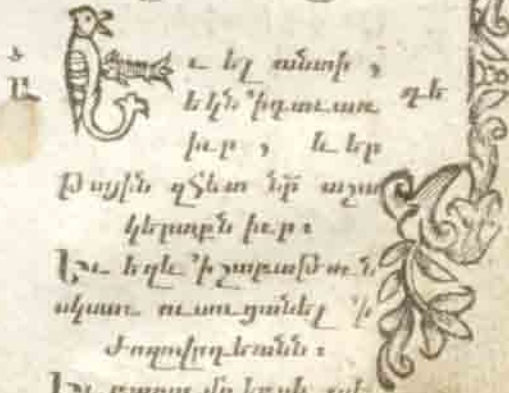 Եւ ել անտի ,
եկն ՚ի գաւառ
իւր , և եր
թային զհետ նր աշա
կերտքն իւր ։
Եւ եղև ՚ի շաբաթուն
սկսաւ ուսուցանել ՚ի
ժողովրդեանն ։
Եւ